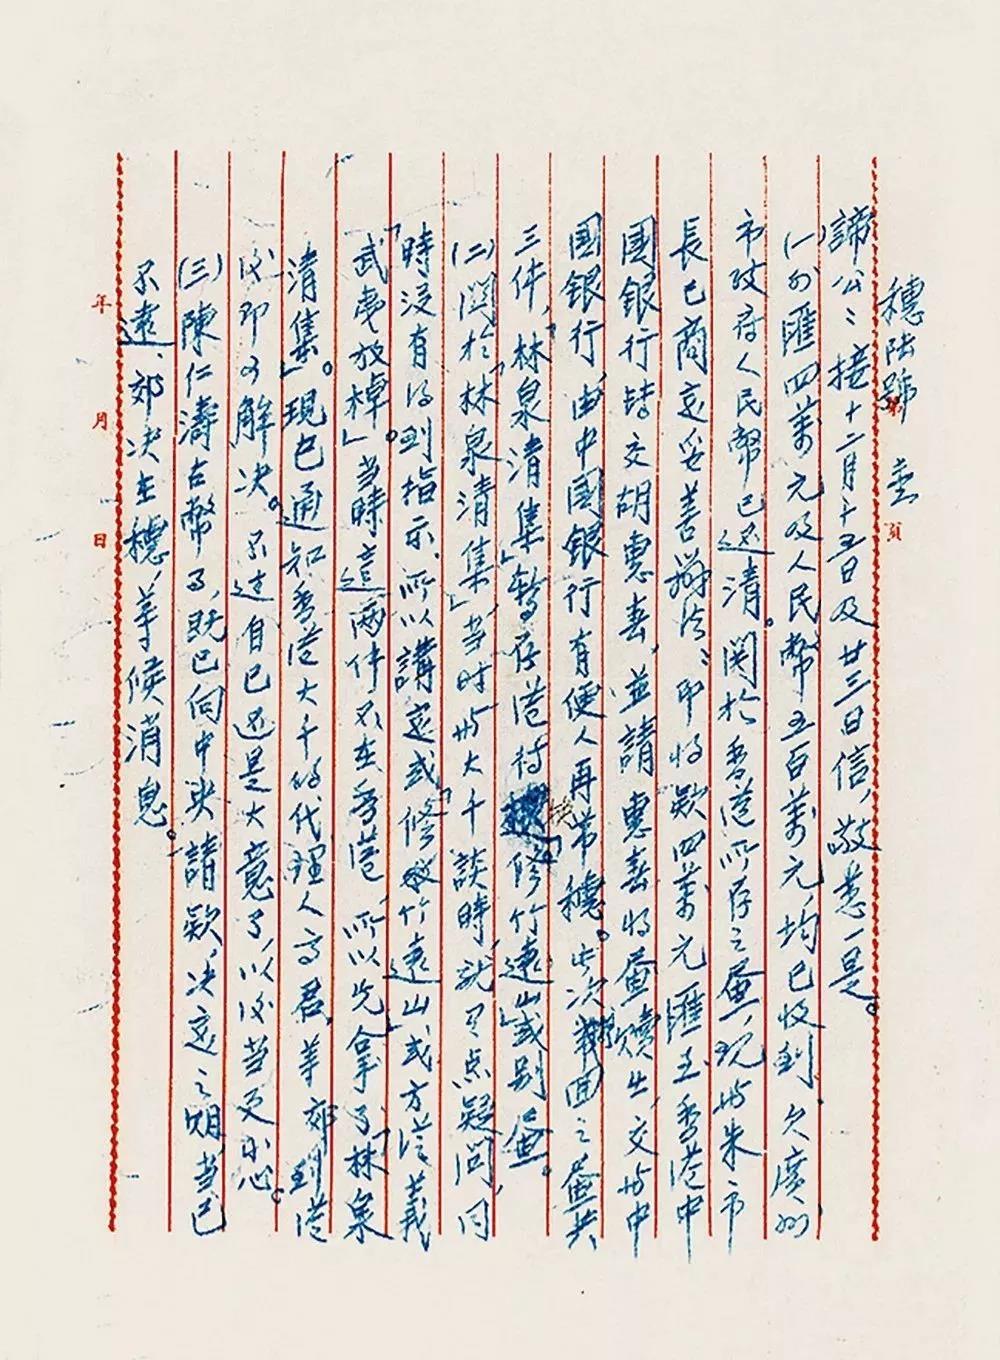 穗陆號 第壹頁
諦公：接十二月十五日及廿三日信，敬悉一是。
(一)外匯四萬元及人民幣五百萬元，均已收到，欠廣州
市政府人民幣已還清。関於香港所存之畫，現与朱市
長已商定妥善辦法：即将款四萬元匯至香港中
國銀行轉交胡惠春，並請惠春将畫贖出，交与中
國銀行，由中國銀行有便人再带穗。此次 回之畫共
三件，「林泉清集」暫存港待換「修竹遠山」或别畫。
(二)関於「林泉清集」当时与大千談時，就有点疑问，同
時没有得到指示，所以講定或「修竹遠山」或方從義
「武夷放棹」。当時這两件不在香港，所以先拿了「林泉
清集」。現已通知香港大千的代理人高君，等郊到港
後即可解决。不过自己还是大意了，以後当更小心。
(三)陳仁濤古幣事，既已向中央請款，决定之期当已
不遠，郊决在穗，等候消息。
年 月 日